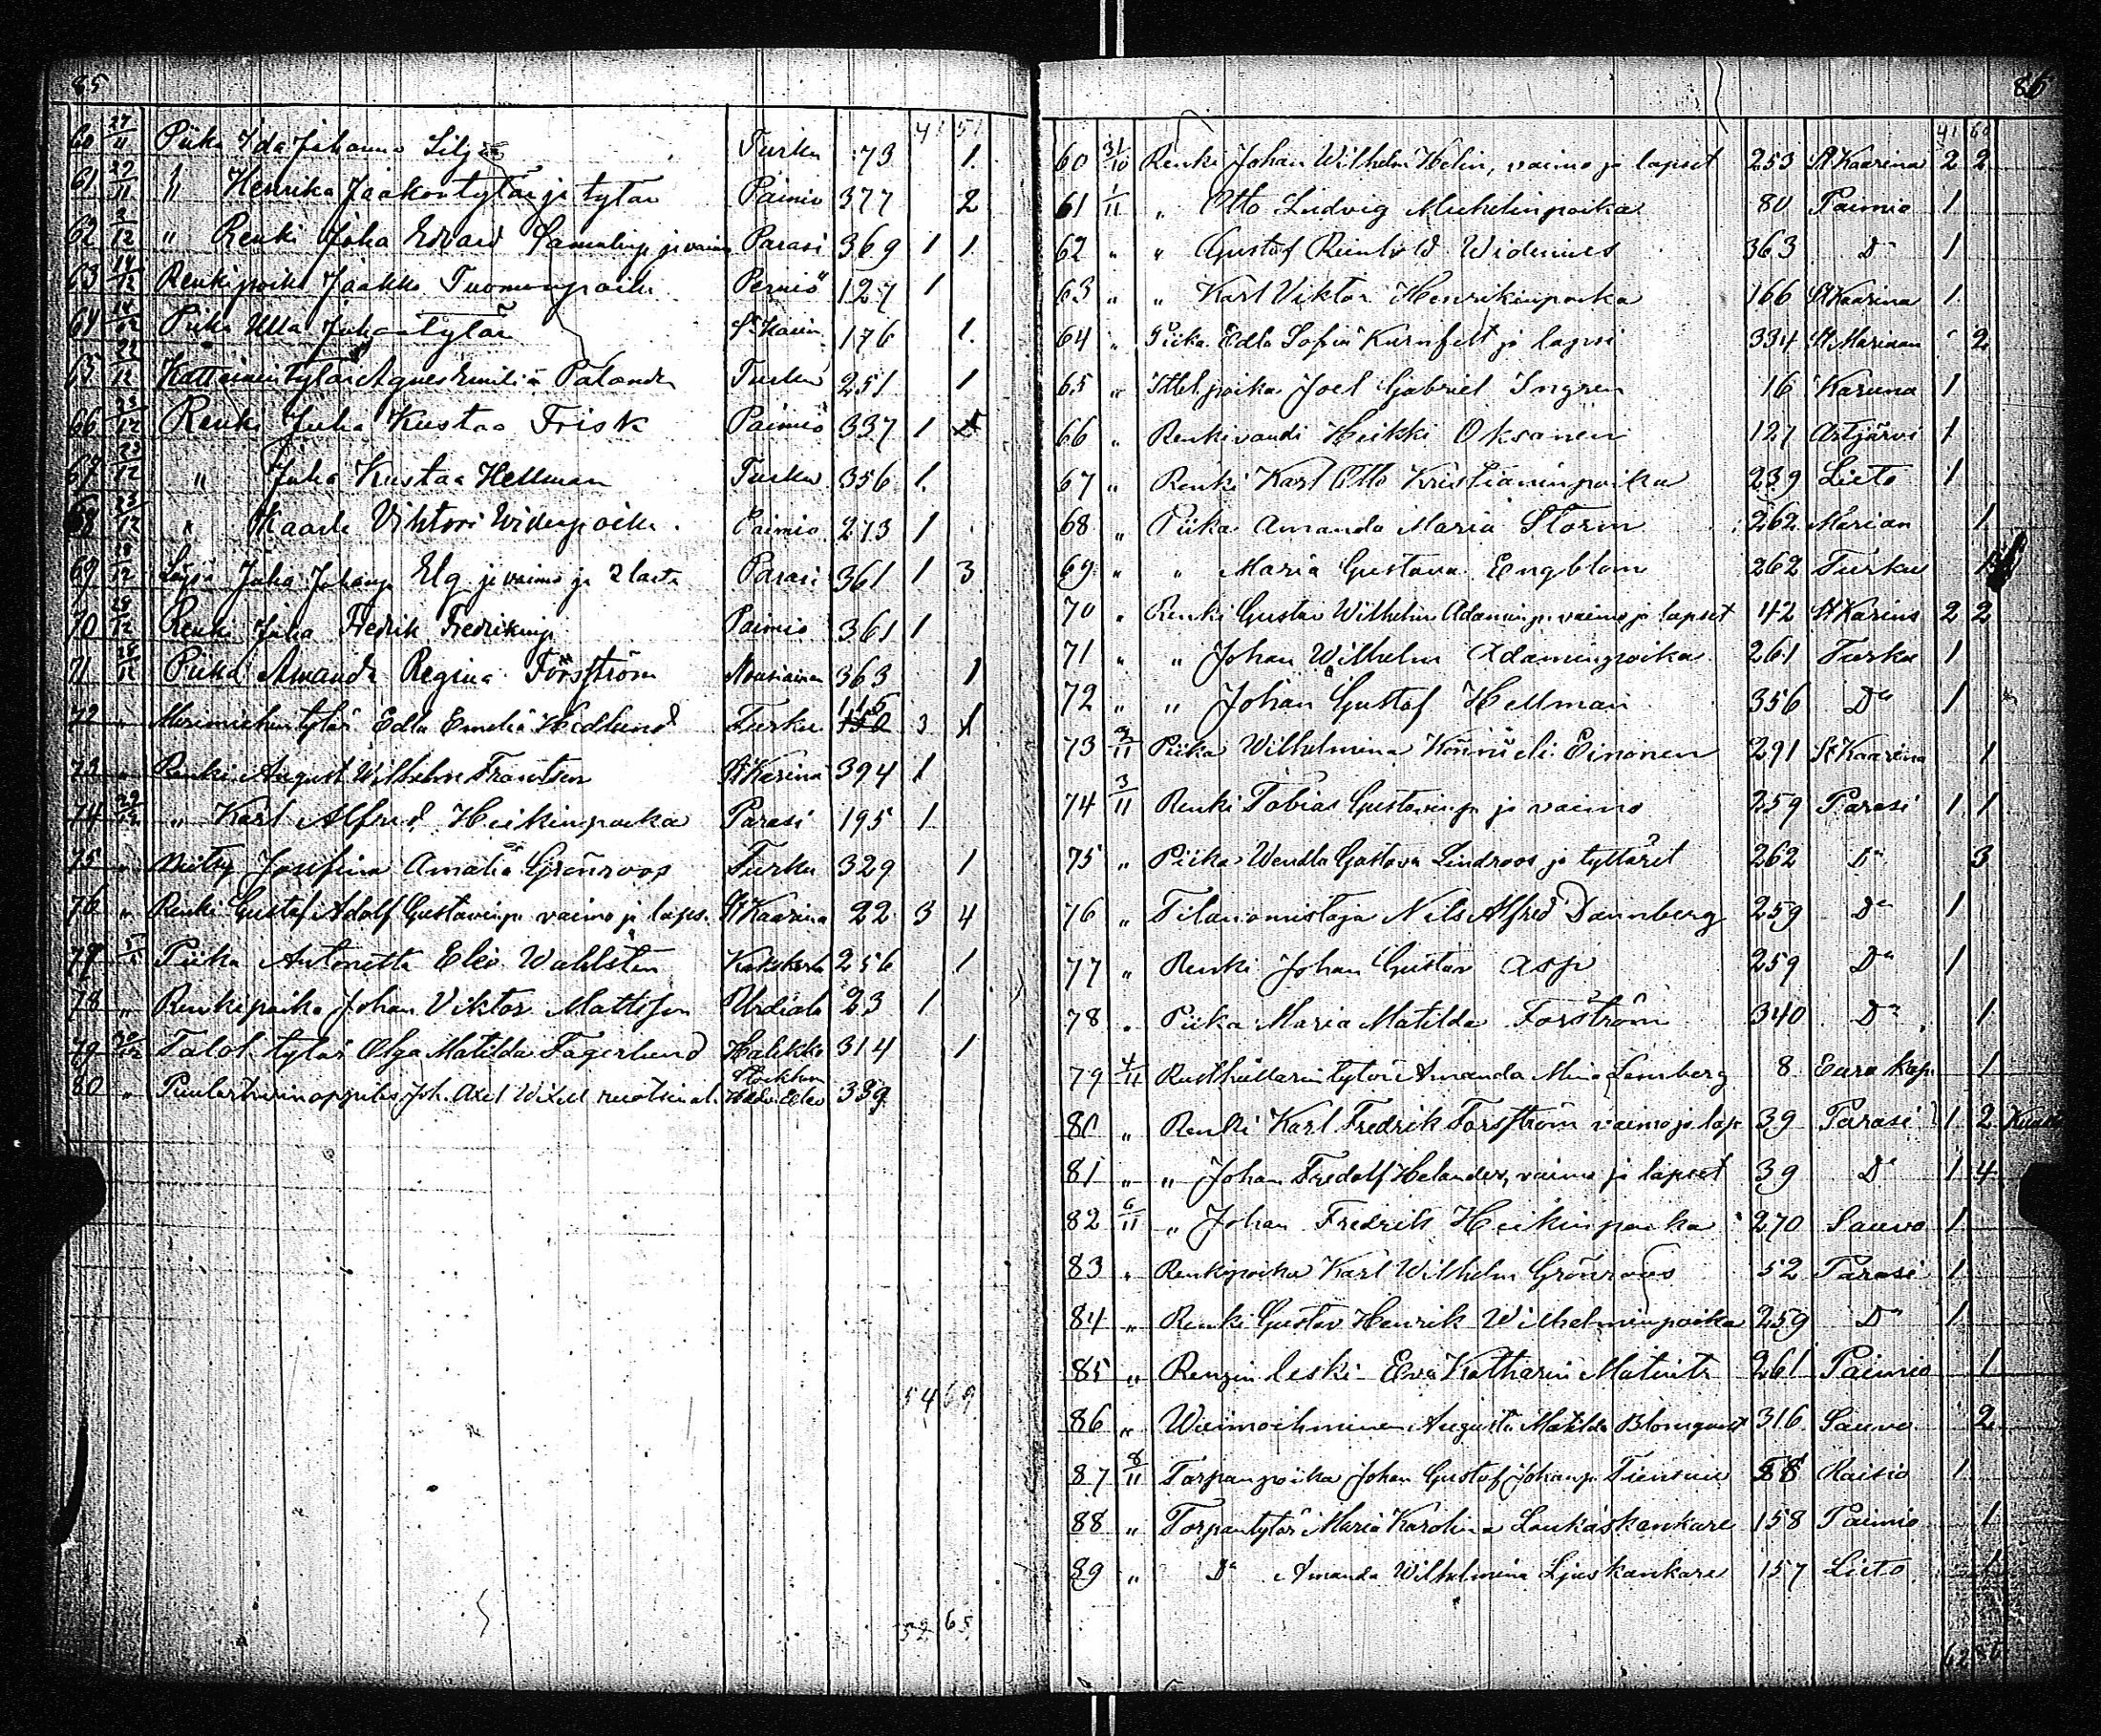 85
41 51
60 27/11 Piika Ida Johanna Silja Turku 73 1
61 29/11 " Henrika Jaakontytär ja tytär Paimio 377 2
62 2/12 " Renki Juha Edvard Samulinp ja vaimo Parasi 369 1 1
63 14/12 Renkipoika Jaakko Tuomanpoika Perniö 127 1
64 14/12 Piika Ulla Juhantytär St Karin 176 1
65 22/12 Agnes Emilia Palander Turku 251 1
66 23/12 Renki Juha Kustaa Frisk Paimio 337 1
67 23/12 " Juha Kustaa Hellman Turku 356 1
68 23/12 " Kaarle Vihtori Paimio 273 1
69 28/12 Juha Johanp Elg ja vaimo ja 2 lasta Parasi 361 1 3
70 28/12 Renki Juha Fredrik Fredrikinp Paimio 361 1
71 28/12 Piika Amanda Regina Forsström Nousiainen 363 1
72 " Merimiehentytär Edla Emelia Hedlund Turku 115 3 1
73 " Renki August Wilhelm Frantsen St Karina 394 1
74 29/12 " Karl Alfred Heikinpoika Parasi 195 1
75 " Josefina Amalia Grönroos Turku 329 1
76 " Renki Gustaf Adolf Gustavinp vaimo ja laps. St Kaarina 22 3 4
77 " Piika Antonetta Eleo Wahlsten Kakskerta 256 1
78 " Renkipoika Johan Viktor Mattsson Urdiala 23 1
79 30/12 Talol. tytär Olga Matilda Fagerlund Halikko 314 1
80 " Joh. Axel Wixell ruotsinal. Stockholm Hedv. Eleo 339
54 69
52 65
86
41 60
60 31/10 Renki Johan Wilhelm Helin, vaimo ja lapset 253 St Kaarina 2 2
61 1/11 " Otto Ludvig Mickelinpoika 80 Paimio 1
62 " " Gustaf Reinhold Widenius 363 Do 1
63 " " Karl Viktor Henrikinpoika 166 St Kaarina 1
64 " Piika Edla Sofia Kurnfelt ja lapsi 334 St Marian 2
65 " Ittel. poika Joel Gabriel Ingren 16 Karuna 1
66 " Renkivouti Heikki Oksanen 127 Artjärvi 1
67 " Renki Karl Otto Kristianinpoika 239 Lieto 1
68 " Piika Amanda Maria Storm 262 Marian 1
69 " " Maria Gustava Engblom 262 Turku 1
70 " Renki Gustav Wilhelm Adaminp. vaimo ja lapset 42 St Karins 2 2
71 " " Johan Wilhelm Adaminpoika 261 Turku 1
72 " " Johan Gustaf Hellman 356 Do 1
73 2/11 Piika Wilhelmina Einonen 291 St Kaarina 1
74 3/11 Renki Tobias Gustavinp ja vaimo 259 Parasi 1 1
75 " Piika Wendla Gustava Lindroos ja tyttäret 262 Do 3
76 " Tilanomistaja Nils Alfred Dannberg 259 Do 1
77 " Renki Johan Gustav Asp 259 Do 1
78 " Piika Maria Matilda Forström 340 Do 1
79 4/11 Rusthällarin tytär Amanda Mina Lemberg 8 Eura kap. 1
80 " Renki Karl Fredrik Forsström vaimo ja lap 39 Parasi 1 2
81 " " Johan Fredolf Helander, vaimo ja lapset 39 Do 1 4
82 6/11 " Johan Fredrik Heikinpoika 270 Sauvo 1
83 " Renkipoika Karl Wilhelm Grönroos 52 Parasi 1
84 " Renki Gustav Henrik Wilhelminpoika 259 Do 1
85 " Rengin leski Eva Katharin Matintr 261 Paimio 1
86 " Waimoihminen Augusta Matilda Blomqvist 316 Sauvo 2
87 8/11 Torpanpoika Johan Gustaf Johanp. Tiensuu 58 Raisio 1
88 " Torpantytär Maria Karolina Laukaskankare 158 Paimio 1
89 " Do Amanda Wilhelmina Ljuskankare 157 Lieto 1
62 86